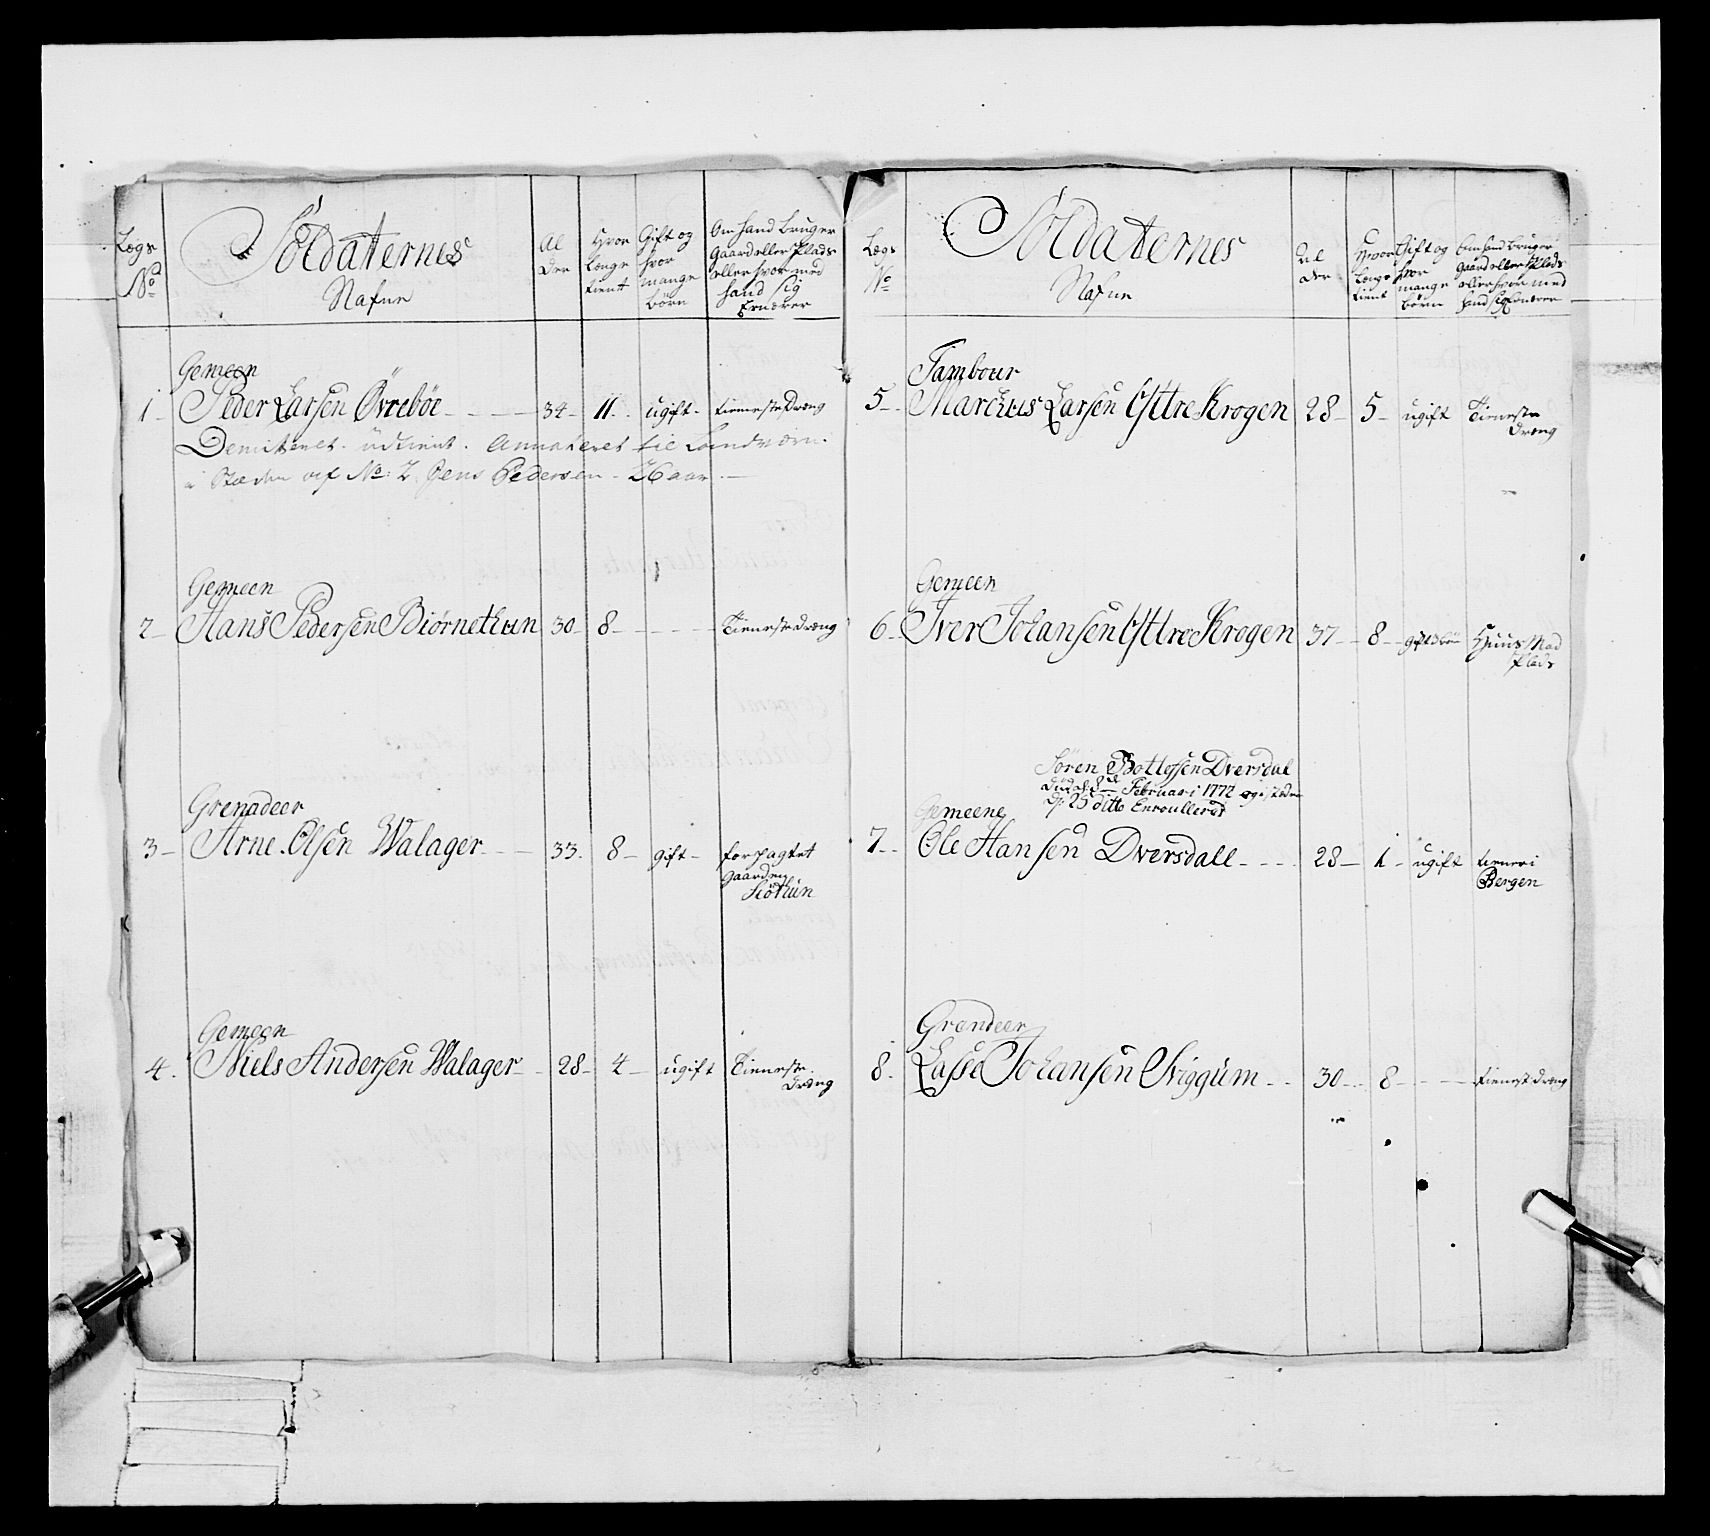 Lægs
No
Soldaternes
Nafne
Al
der
Hvor
Længe
tient
Gift og
hvor
mange
börn
Om hand bruger
Gaard eller Plads
eller hvor med
hand sig
Ernærer
Gemeen
1 - Peder Larsen Övreböe - - - 34 - 11 - ugift - tieneste Dræng
Demitteret udtient. Annoteret til Landværn.
i Stæden af No: 2 Jens Pedersen - 26 aar. -
Gemeen
2 - Hans Pedersen Biörnethun 30 - 8 - - - - Tieneste dræng
Grenadeer
3 - Arne Olsen Walager - - 33. 8 - gift - forpagtet
gaarden
Siöthun
Gemeen
4. Niels Andersen Walager - - 28 - 4 - ugift Tieneste
dræng
Lægs
No
Soldaternes
Nafne
Al
der
Hvor
Længe
tient
Gift og
hvor
mange
börn
Om hand bruger
gaard eller Plads
eller hvor med
hand sig Ernærer
Tambour
5 - Marchus Larsen Östtre Krogen 28 - 5 - ugift Tieneste
dræng
Gemeen
6 - Iver Johansen Östtre Krogen 37 - 8 - gift Huus Mad
Plads
Sören Botlofsen Dversdal
död d: 8de Februari 1772
d: 25 ditto Enroulleret
Gemeene
7 - Ole Hansen Dversdall - - - 28 - 1 - ugift tiener i
Bergen
Grendeer
8. Lasse Johansen Sviggum - - 30 - 8 - - - tienest dræng